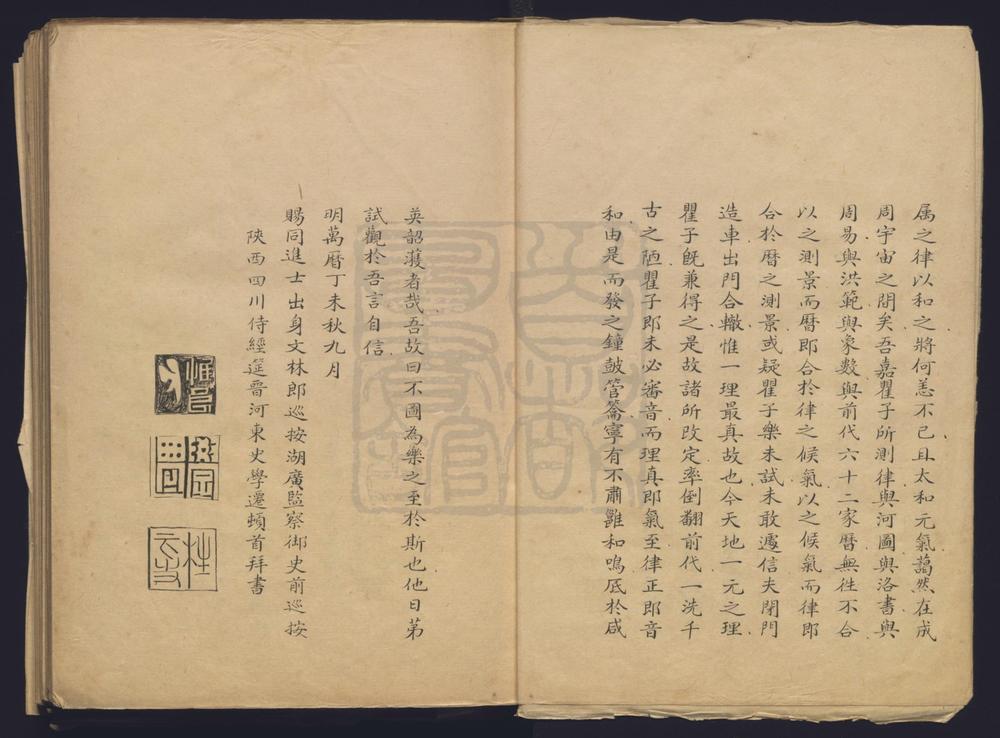 属之律以和之將何恙不已且太和元氣藹然在成
周宇宙之間矣吾嘉瞿子所測律與河圖與洛書與
周易與洪範與象數與前代六十二家曆無徃不合
以之測景而曆即合於律之候氣以之候氣而律即
合於曆之測景或疑瞿子樂未試未敢遽信夫閉門
造車出門合轍惟一理最真故也今天地一元之理
瞿子既兼得之是故諸所改定率倒翻前代一洗千
古之陋瞿子即未必審音而理真即氣至律正即音
和由是而發之鐘鼓管籥寧有不肅雝和鳴底於咸
英韶濩者哉吾故曰不圖為樂之至於斯也他日第
試觀於吾言自信
明萬曆丁未秋九月
賜同進士出身文林郎巡按湖廣監察御史前巡按
陝西四川侍經筵晋河東史學遷頓首拜書